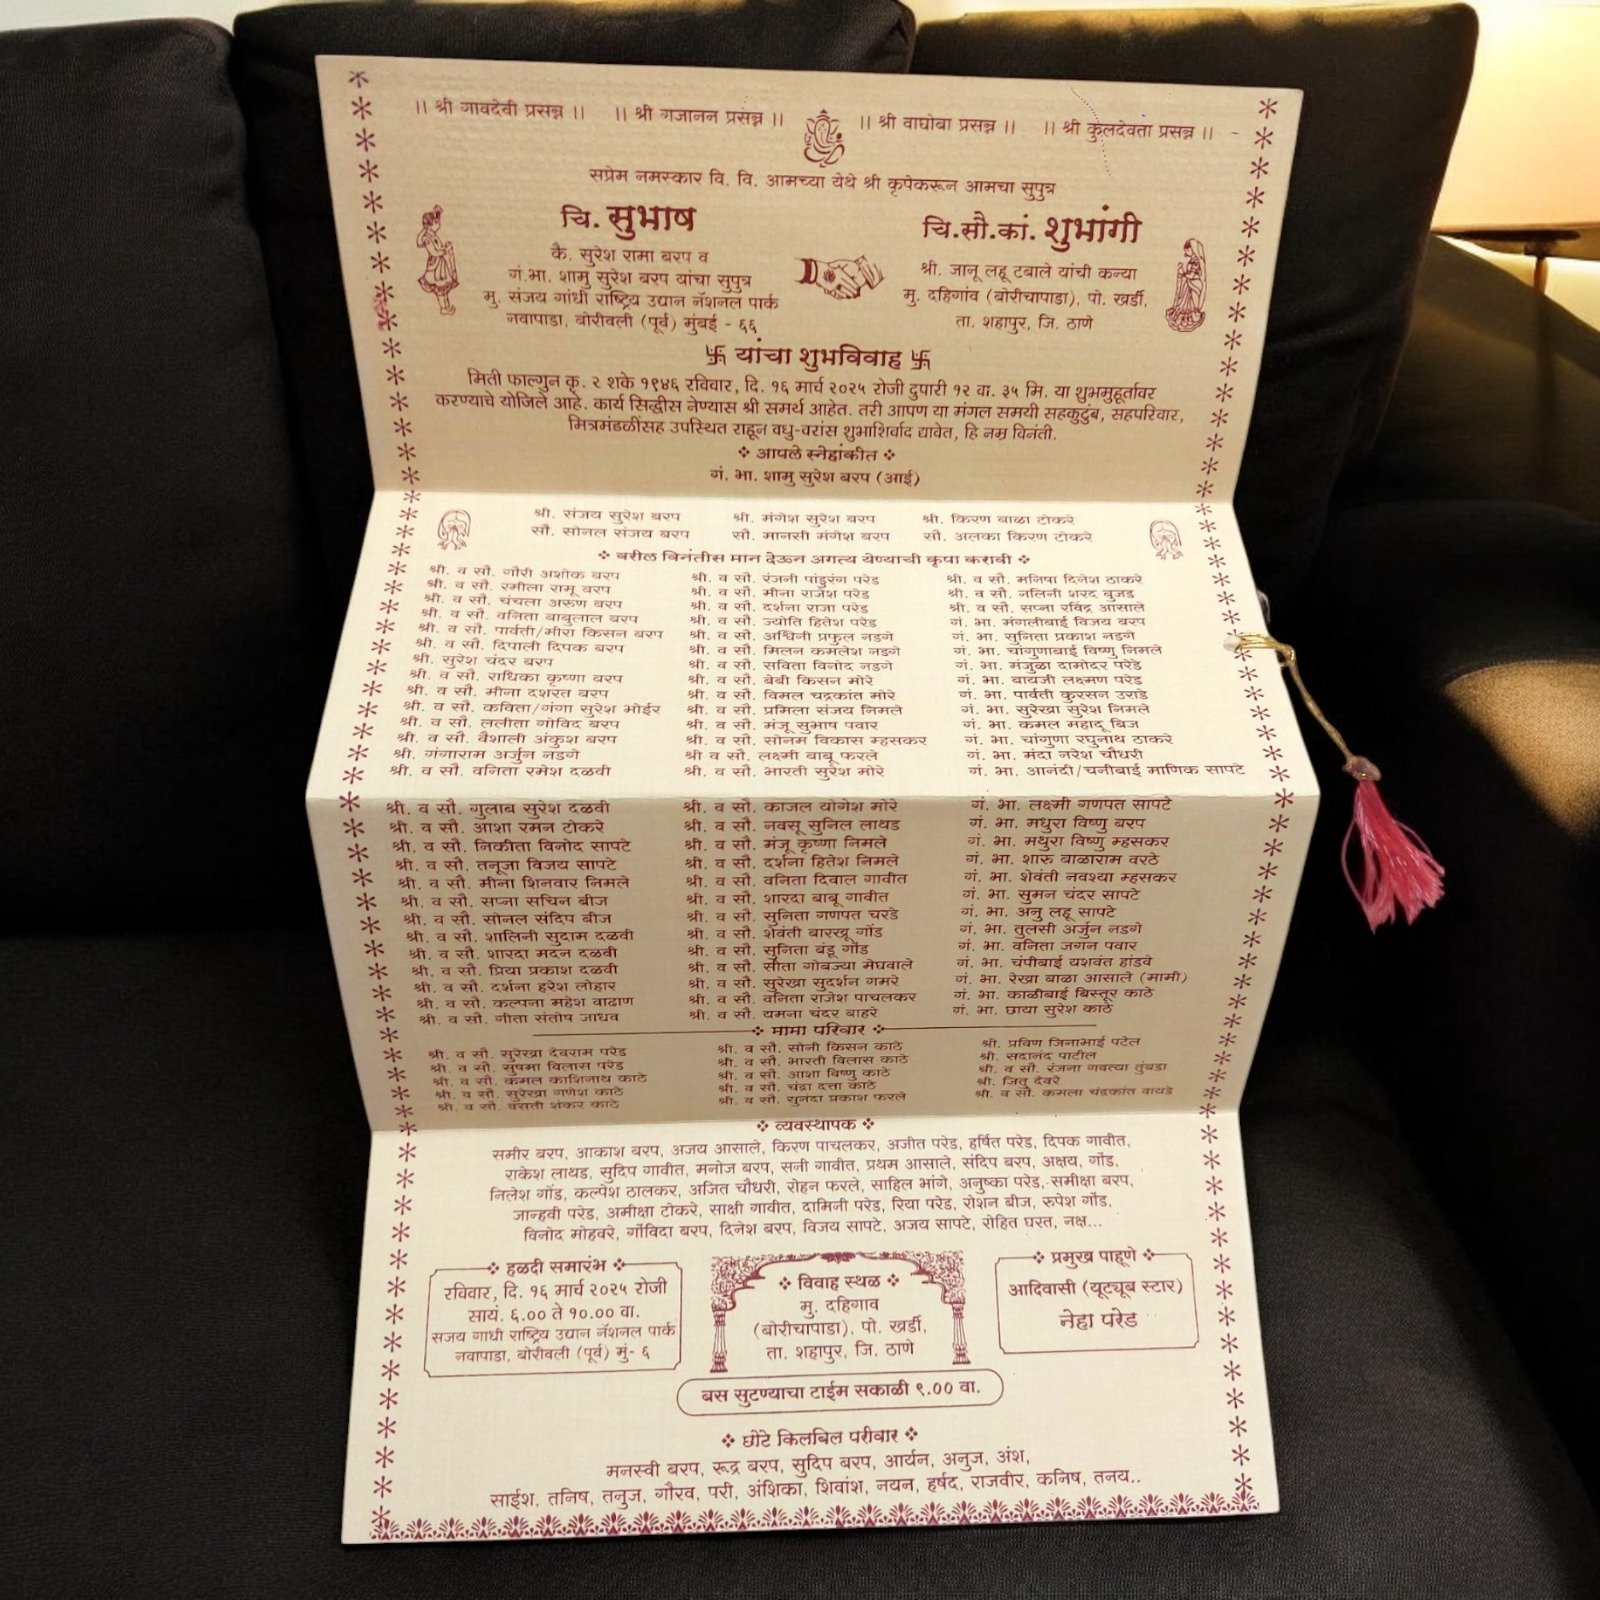 ।। श्री गावदेवी प्रसन्न ।। ।। श्री गजानन प्रसंन्न ।। ।। श्री वाघोबा प्रसन्न ।। ।। श्री कुलदेवता प्रसन्न ।।
सप्रेम नमस्कार वि. वि. आमच्या येथे श्री कृपेकरून आमचा सुपुत्र
चि. सुभाष
कै. सुरेश रामा बरप व
गं.भा. शामु सुरेश बरप यांचा सुपुत्र
मु. संजय गांधी राष्ट्रिय उद्यान नॅशनल पार्क
नवापाडा, बोरीवली (पूर्व) मुंबई - ६६
चि.सौ.कां. शुभांगी
श्री. जानू लहू टबाले यांची कन्या
मु. दहिगांव (बोरीचापाडा), पो. खर्डी,
ता. शहापुर, जि. ठाणे
卐 यांचा शुभविवाह 卐
मिती फाल्गुन कृ. २ शके १९४६ रविवार, दि. १६ मार्च २०२५ रोजी दुपारी १२ वा. ३५ मि. या शुभमुहूर्तावर
करण्याचे योजिले आहे. कार्य सिद्धीस नेण्यास श्री समर्थ आहेत. तरी आपण या मंगल समयी सहकुटुंब, सहपरिवार,
मित्रमंडळींसह उपस्थित राहून वधु-वरांस शुभाशिर्वाद द्यावेत, हि नम्र विनंती.
❖ आपले स्नेहांकीत ❖
गं. भा. शामु सुरेश बरप (आई)
श्री. संजय सुरेश बरप श्री. मंगेश सुरेश बरप श्री. किरण बाळा टोकरे
सौ. सोनल संजय बरप सौ. मानसी मंगेश बरप सौ. अलका किरण टोकरे
❖ वरील विनंतीस मान देऊन अगत्य येण्याची कृपा करावी ❖
श्री. व सौ. गौरी अशोक बरप
श्री. व सौ. रमीला रामू बरप
श्री. व सौ. चंचला अरुण बरप
श्री. व सौ. वनिता बाबुलाल बरप
श्री. व सौ. पार्वती/मीरा किसन बरप
श्री. व सौ. दिपाली दिपक बरप
श्री. सुरेश चंदर बरप
श्री. व सौ. राधिका कृष्णा बरप
श्री. व सौ. मीना दशरत बरप
श्री. व सौ. कविता/गंगा सुरेश भोईर
श्री. व सौ. ललीता गोविद बरप
श्री. व सौ. वैशाली अंकुश बरप
श्री. गंगाराम अर्जुन नडगे
श्री. व सौ. वनिता रमेश दळवी
श्री. व सौ. गुलाब सुरेश दळवी
श्री. व सौ. आशा रमन टोकरे
श्री. व सौ. निकीता विनोद सापटे
श्री. व सौ. तनूजा विजय सापटे
श्री. व सौ. मीना शिनवार निमले
श्री. व सौ. सप्ना सचिन बीज
श्री. व सौ. सोनल संदिप बीज
श्री. व सौ. शालिनी सुदाम दळवी
श्री. व सौ. शारदा मदन दळवी
श्री. व सौ. प्रिया प्रकाश दळवी
श्री. व सौ. दर्शना हरेश लोहार
श्री. व सौ. कल्पना महेश वाढाण
श्री. व सौ. गीता संतोष जाधव
श्री. व सौ. रंजनी पांडुरंग परेड
श्री. व सौ. मीना राजेश परेड
श्री. व सौ. दर्शना राजा परेड
श्री. व सौ. ज्योति हितेश परेड
श्री. व सौ. अश्विनी प्रफुल नडगे
श्री. व सौ. मिलन कमलेश नडगे
श्री. व सौ. सविता विनोद नडगे
श्री. व सौ. बेबी किसन मोरे
श्री. व सौ. विमल चद्रकांत मोरे
श्री. व सौ. प्रमिला संजय निमले
श्री. व सौ. मंजू सुभाष पवार
श्री. व सौ. सोनम विकास म्हसकर
श्री. व सौ. लक्ष्मी बाबू फरले
श्री. व सौ. भारती सुरेश मोरे
श्री. व सौ. काजल योगेश मोरे
श्री. व सौ. नवसू सुनिल लाथड
श्री. व सौ. मंजू कृष्णा निमले
श्री. व सौ. दर्शना हितेश निमले
श्री. व सौ. वनिता दिवाल गावीत
श्री. व सौ. शारदा बाबू गावीत
श्री. व सौ. सुनिता गणपत चरडे
श्री. व सौ. शेवंती बारखू गोंड
श्री. व सौ. सुनिता बंडू गोंड
श्री. व सौ. सीता गोबज्या मेघवाले
श्री. व सौ. सुरेखा सुदर्शन गमरे
श्री. व सौ. वनिता राजेश पाचलकर
श्री. व सौ. यमना चंदर बाहरे
श्री. व सौ. मनिषा दिनेश ठाकरे
श्री. व सौ. नलिनी शरद बुजड
श्री. व सौ. सप्ना रविंद्र आसाले
गं. भा. मंगलीबाई विजय बरप
गं. भा. सुनिता प्रकाश नडगे
गं. भा. चांगुणाबाई विष्णु निमले
गं. भा. मंजुळा दामोदर परेड
गं. भा. बायजी लक्ष्मण परेड
गं. भा. पार्वती कुरसन उराडे
गं. भा. सुरेखा सुरेश निमले
गं. भा. कमल महादू बिज
गं. भा. चांगुणा रघुनाथ ठाकरे
गं. भा. मंदा नरेश चौधरी
गं. भा. आनंदी/चनीबाई माणिक सापटे
गं. भा. लक्ष्मी गणपत सापटे
गं. भा. मधुरा विष्णु बरप
गं. भा. मथुरा विष्णु म्हसकर
गं. भा. शारु बाळाराम वरठे
गं. भा. शेवंती नवश्या म्हसकर
गं. भा. सुमन चंदर सापटे
गं. भा. अनु लहू सापटे
गं. भा. तुलसी अर्जुन नडगे
गं. भा. वनिता जगन पवार
गं. भा. चंपीबाई यशवंत हांडवे
गं. भा. रेखा बाळा आसाले (मामी)
गं. भा. काळीबाई बिस्तूर काठे
गं. भा. छाया सुरेश काठे
❖ मामा परिवार ❖
श्री. व सौ. सुरेखा देवराम परेड
श्री. व सौ. सुषमा विलास परेड
श्री. व सौ. कमल काशिनाथ काठे
श्री. व सौ. सुरेखा गणेश काठे
श्री. व सौ. वसंती शंकर काठे
श्री. व सौ. सोनी किसन काठे
श्री. व सौ. भारती विलास काठे
श्री. व सौ. आशा विष्णु काठे
श्री. व सौ. चंद्रा दत्ता काठे
श्री. व सौ. सुनंदा प्रकाश फरले
श्री. प्रविण जिनाभाई पटेल
श्री. सदानंद पाटील
श्री. व सौ. रंजना गवत्या तुंबडा
श्री. जितू देवरे
श्री. व सौ. कमला चंद्रकांत वायडे
❖ व्यवस्थापक ❖
समीर बरप, आकाश बरप, अजय आसाले, किरण पाचलकर, अजीत परेड, हर्षित परेड, दिपक गावीत,
राकेश लाथड, सुदिप गावीत, मनोज बरप, सनी गावीत, प्रथम आसाले, संदिप बरप, अक्षय, गोंड,
निलेश गोंड, कल्पेश ठालकर, अजित चौधरी, रोहन फरले, साहिल भांगे, अनुष्का परेड, समीक्षा बरप,
जान्हवी परेड, अमीक्षा टोकरे, साक्षी गावीत, दामिनी परेड, रिया परेड, रोशन बीज, रुपेश गोंड,
विनोद मोहवरे, गोंविदा बरप, दिनेश बरप, विजय सापटे, अजय सापटे, रोहित घरत, नक्ष...
❖ हळदी समारंभ ❖
रविवार, दि. १६ मार्च २०२५ रोजी
सायं. ६.०० ते १०.०० वा.
सजय गाधी राष्ट्रिय उद्यान नॅशनल पार्क
नवापाडा, बोरीवली (पूर्व) मुं- ६
❖ विवाह स्थळ ❖
मु. दहिगाव
(बोरीचापाडा), पो. खर्डी,
ता. शहापुर, जि. ठाणे
❖ प्रमुख पाहूणे ❖
आदिवासी (यूट्यूब स्टार)
नेहा परेड
बस सुटण्याचा टाईम सकाळी ९.०० वा.
❖ छोटे किलबिल परीवार ❖
मनस्वी बरप, रूद्र बरप, सुदिप बरप, आर्यन, अनुज, अंश,
साईश, तनिष, तनुज, गौरव, परी, अंशिका, शिवांश, नयन, हर्षद, राजवीर, कनिष, तनय..